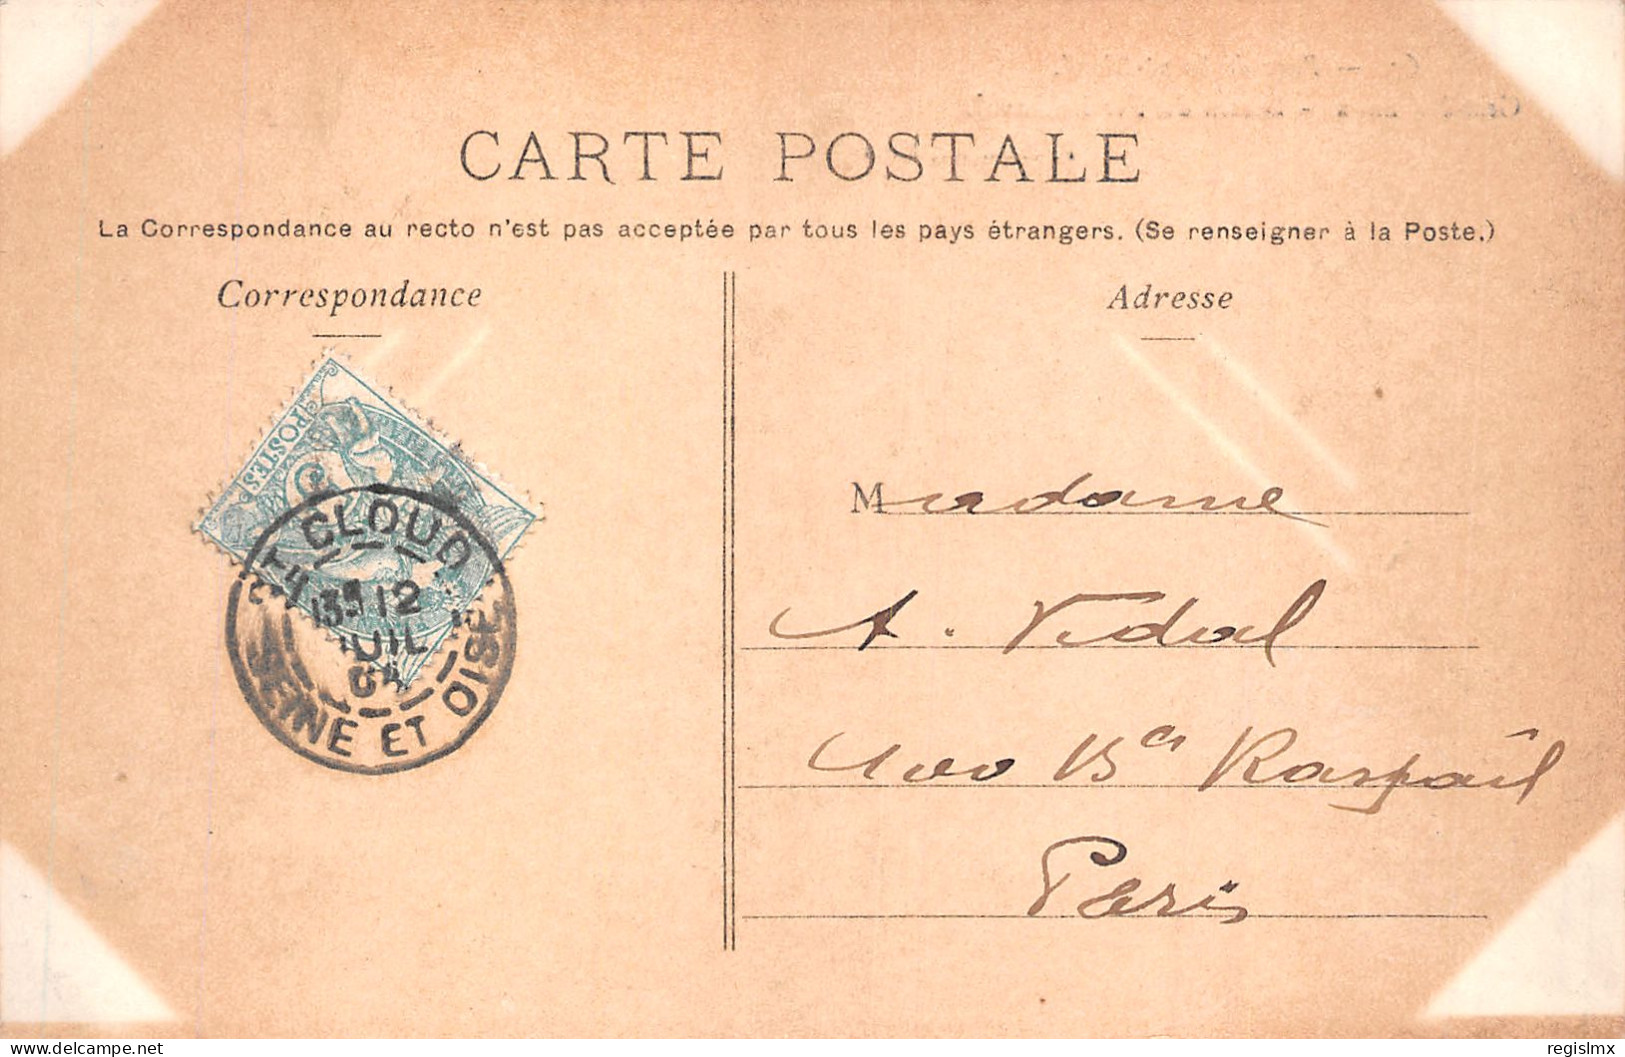 CARTE POSTALE
La Correspondance au recto n'est pas acceptée par tous les pays étrangers. (Se renseigner à la Poste.)
Correspondance
Adresse
POSTES
CLOUD
12
JUIL
SEINE ET OISE
Madame
A. Vidal
100 Bd Raspail
Paris
Delcampe.net
regislmx